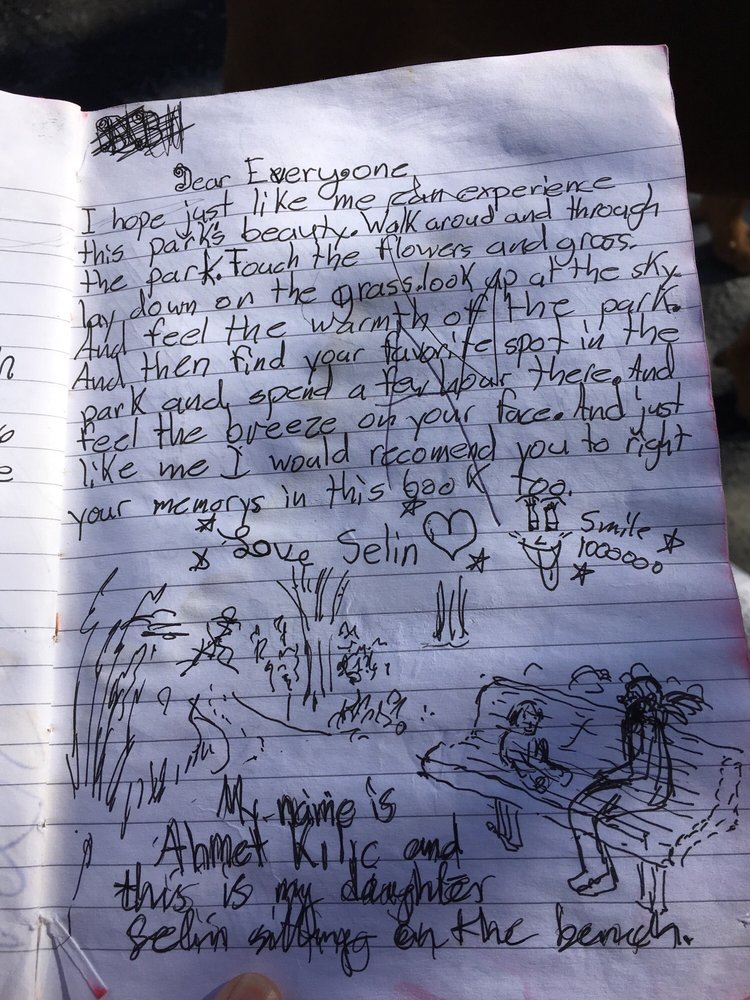 Dear Everyone,
I hope just like me can experience
this park's beauty. Walk aroud and through
the park. Touch the flowers and grass.
lay down on the grass. look up at the sky.
And feel the warmth of the park.
And then find your favorite spot in the
park and spend a few hour there. And
feel the breeze on your face. And just
like me I would recomend you to right
your memorys in this book too.
Love Selin
Smile
1000000
My name is
Ahmet Kilic and
this is my daughter
Selin sitting on the bench.